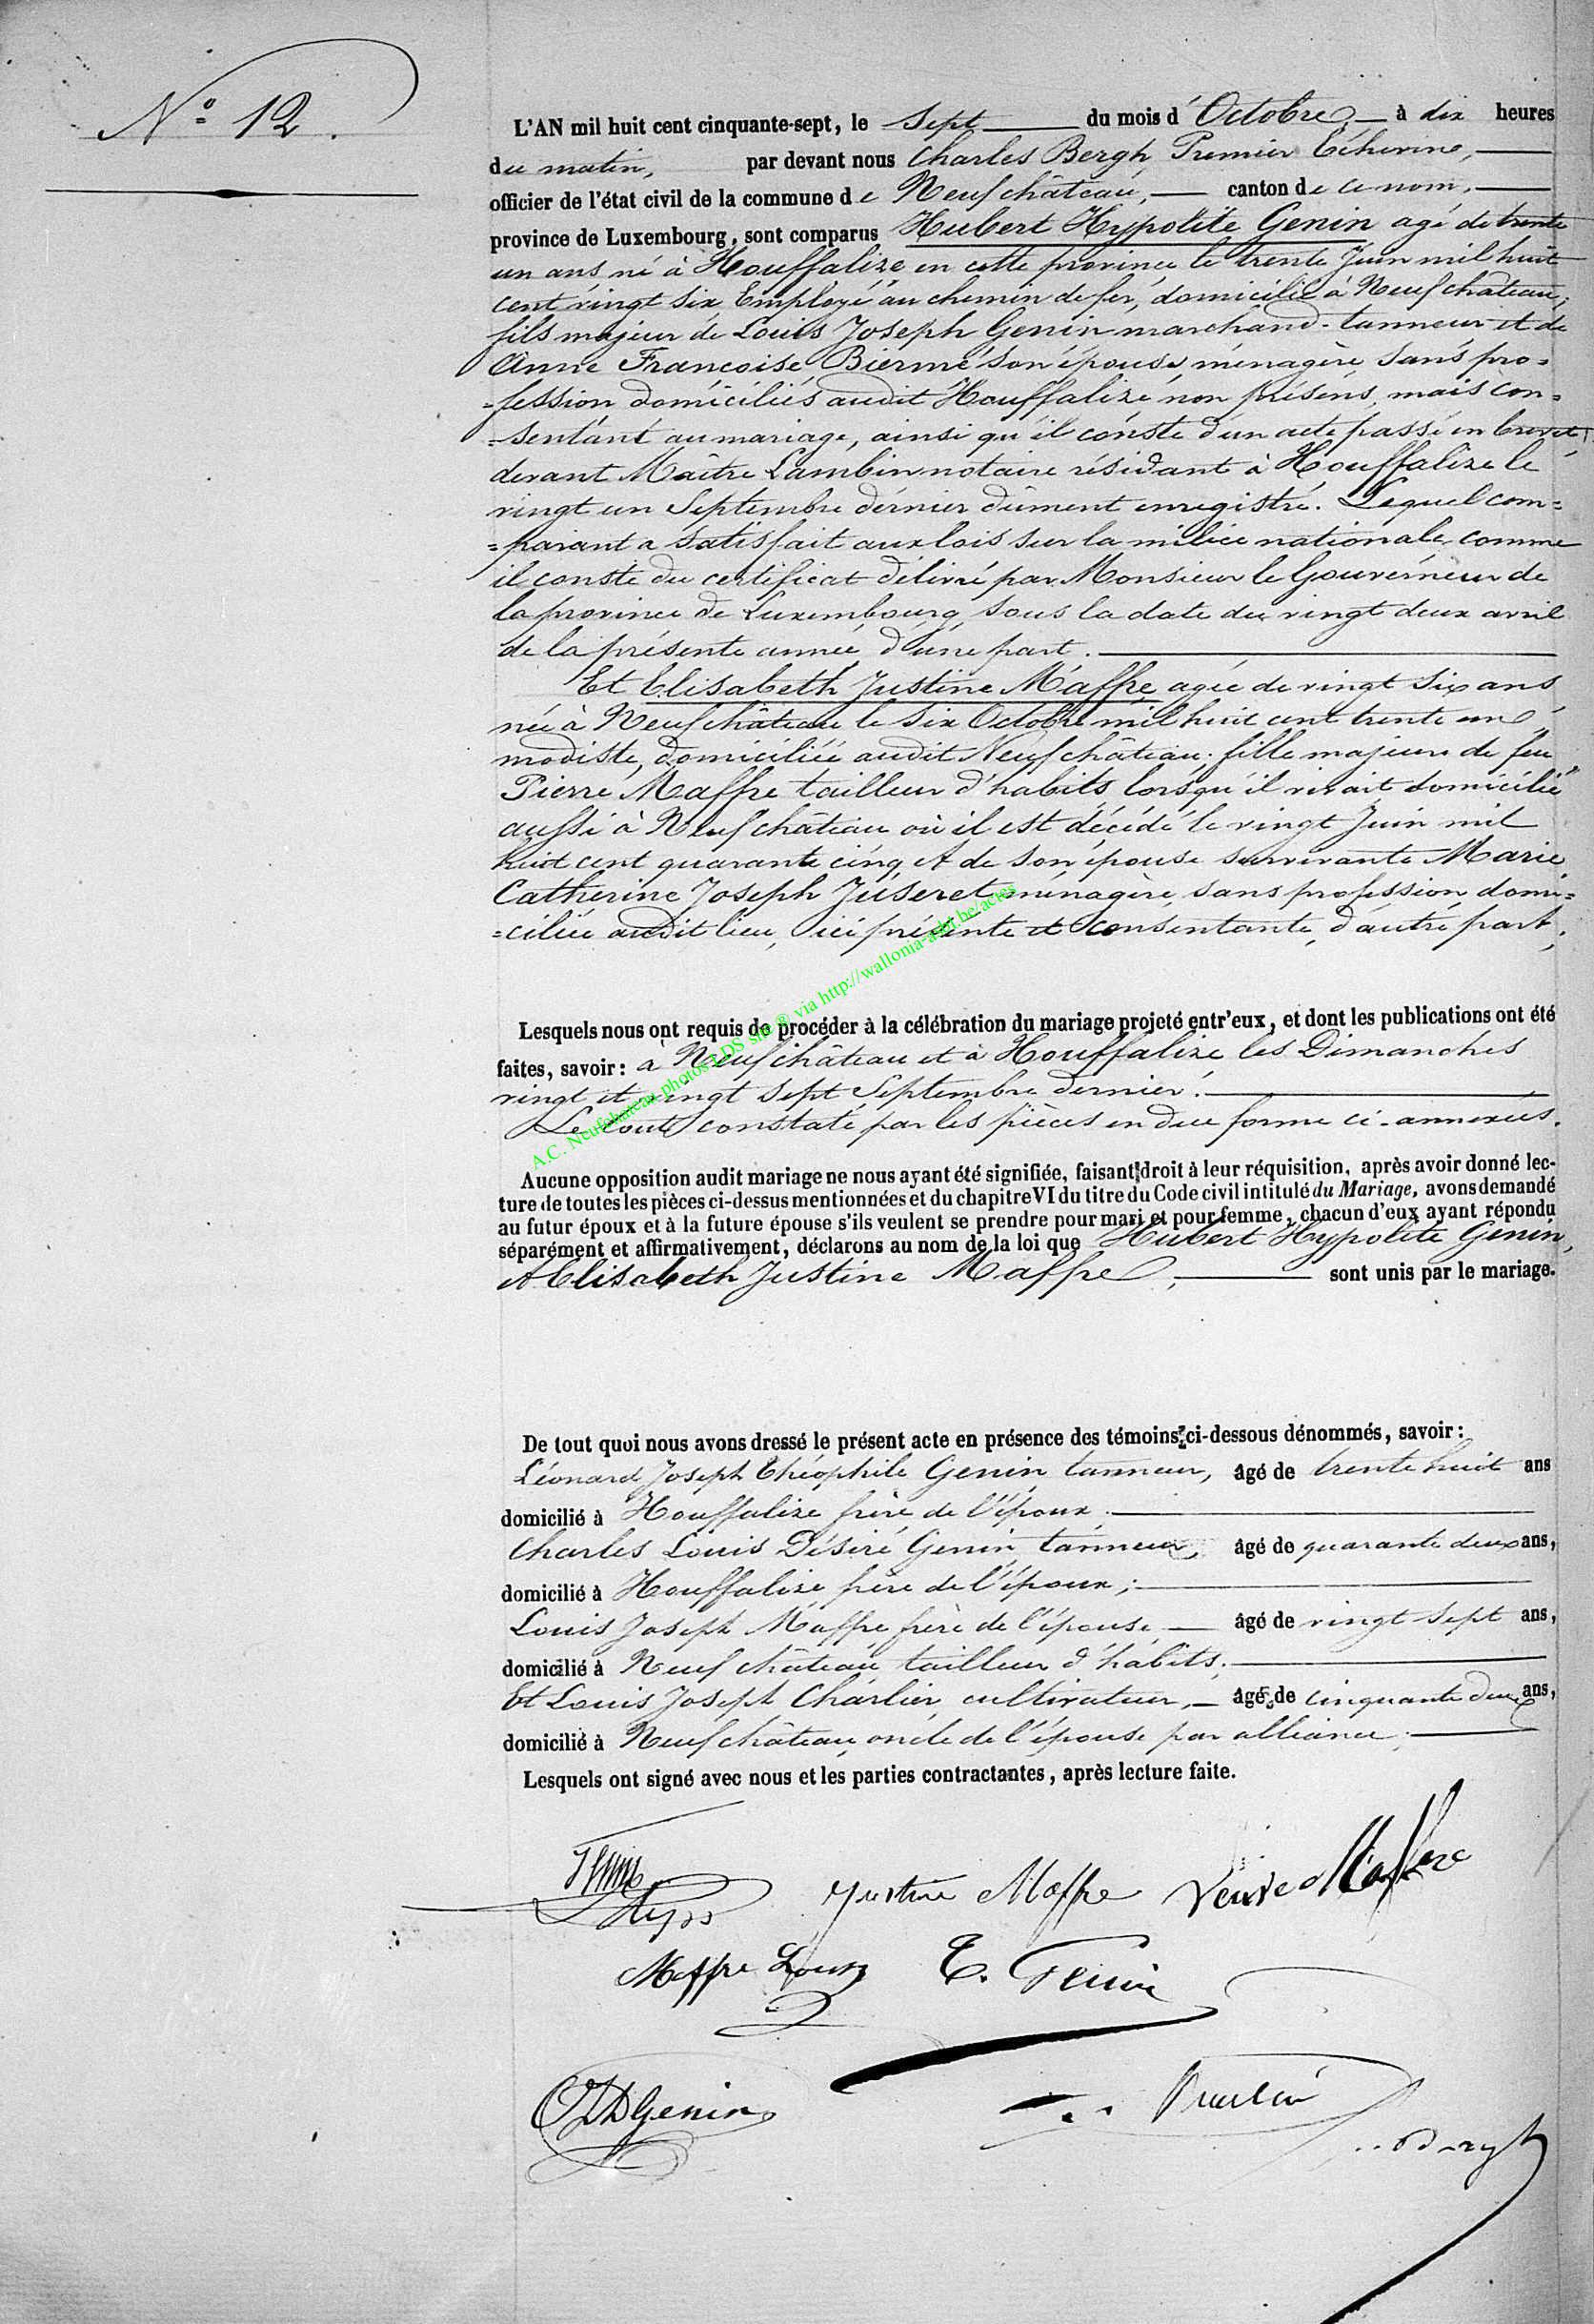 N° 12.
L'AN mil huit cent cinquante-sept, le sept du mois d'Octobre, à dix heures
du matin, par devant nous Charles Bergh, Premier Echevin,
officier de l'état civil de la commune de Neufchâteau, canton de ce nom,
province de Luxembourg, sont comparus Hubert Hypolite Genin agé de trente
un ans né à Houffalize en cette province le trente Juin mil huit
cent vingt six, Employé au chemin de fer, domicilié à Neufchâteau,
fils majeur de Louis Joseph Genin marchand-tanneur et de
Anne Francoise Biermé son épouse, ménagère sans pro=
=fession domiciliés audit Houffalize non présens, mais con=
=sentant au mariage, ainsi qu'il conste d'un acte passé en brevet,
devant Maître Lambin notaire résidant à Houffalize le
vingt un Septembre dernier dûment enregistré. Lequel com=
=parant a satisfait aux lois sur la milice nationale, comme
il conste du certificat délivré par Monsieur le Gouverneur de
la province de Luxembourg, sous la date du vingt deux avril
de la présente année, d'une part.
Et Elisabeth Justine Maffre agée de vingt six ans
née à Neufchâteau le six Octobre mil huit cent trente un
modiste, domiciliée audit Neufchâteau, fille majeure de feu
Pierre Maffre tailleur d'habits, lorsqu'il vivait domicilié
aussi à Neufchâteau où il est décédé le vingt Juin mil
huit cent quarante cinq et de son épouse survivante Marie
Catherine Joseph Juseret ménagère, sans profession domi=
=ciliée audit lieu, ici présente et consentante, d'autre part,
Lesquels nous ont requis de procéder à la célébration du mariage projeté entr'eux, et dont les publications ont été
faites, savoir: à Neufchâteau et à Houffalize les Dimanches
vingt et vingt sept Septembre dernier.
Le tout constaté par les pièces en due forme ci-annexées.
Aucune opposition audit mariage ne nous ayant été signifiée, faisant droit à leur réquisition, après avoir donné lec-
ture de toutes les pièces ci-dessus mentionnées et du chapitre VI du titre du Code civil intitulé du Mariage, avons demandé
au futur époux et à la future épouse s'ils veulent se prendre pour mari et pour femme, chacun d'eux ayant répondu
séparément et affirmativement, déclarons au nom de la loi que Hubert Hypolite Genin,
et Elisabeth Justine Maffre, sont unis par le mariage.
De tout quoi nous avons dressé le présent acte en présence des témoins ci-dessous dénommés, savoir:
Léonard Joseph Théophile Genin, tanneur, âgé de trente huit ans
domicilié à Houffalize frère de l'époux.
Charles Louis Désiré Genin, tanneur, âgé de quarante deux ans,
domicilié à Houffalize frère de l'époux;
Louis Joseph Maffre frère de l'épouse, âgé de vingt sept ans,
domicilié à Neufchâteau, tailleur d'habits.
Et Louis Joseph Charlier, cultivateur, âgé de cinquante deux ans,
domicilié à Neufchâteau, oncle de l'épouse par alliance.
Lesquels ont signé avec nous et les parties contractantes, après lecture faite.
Justine Maffre Veuve Maffre
Maffre Louis T. Genin
CLDGenin
Bergh
A.C. Neufchateau photos LDS site @ via http://wallonia-asbl.be/actes